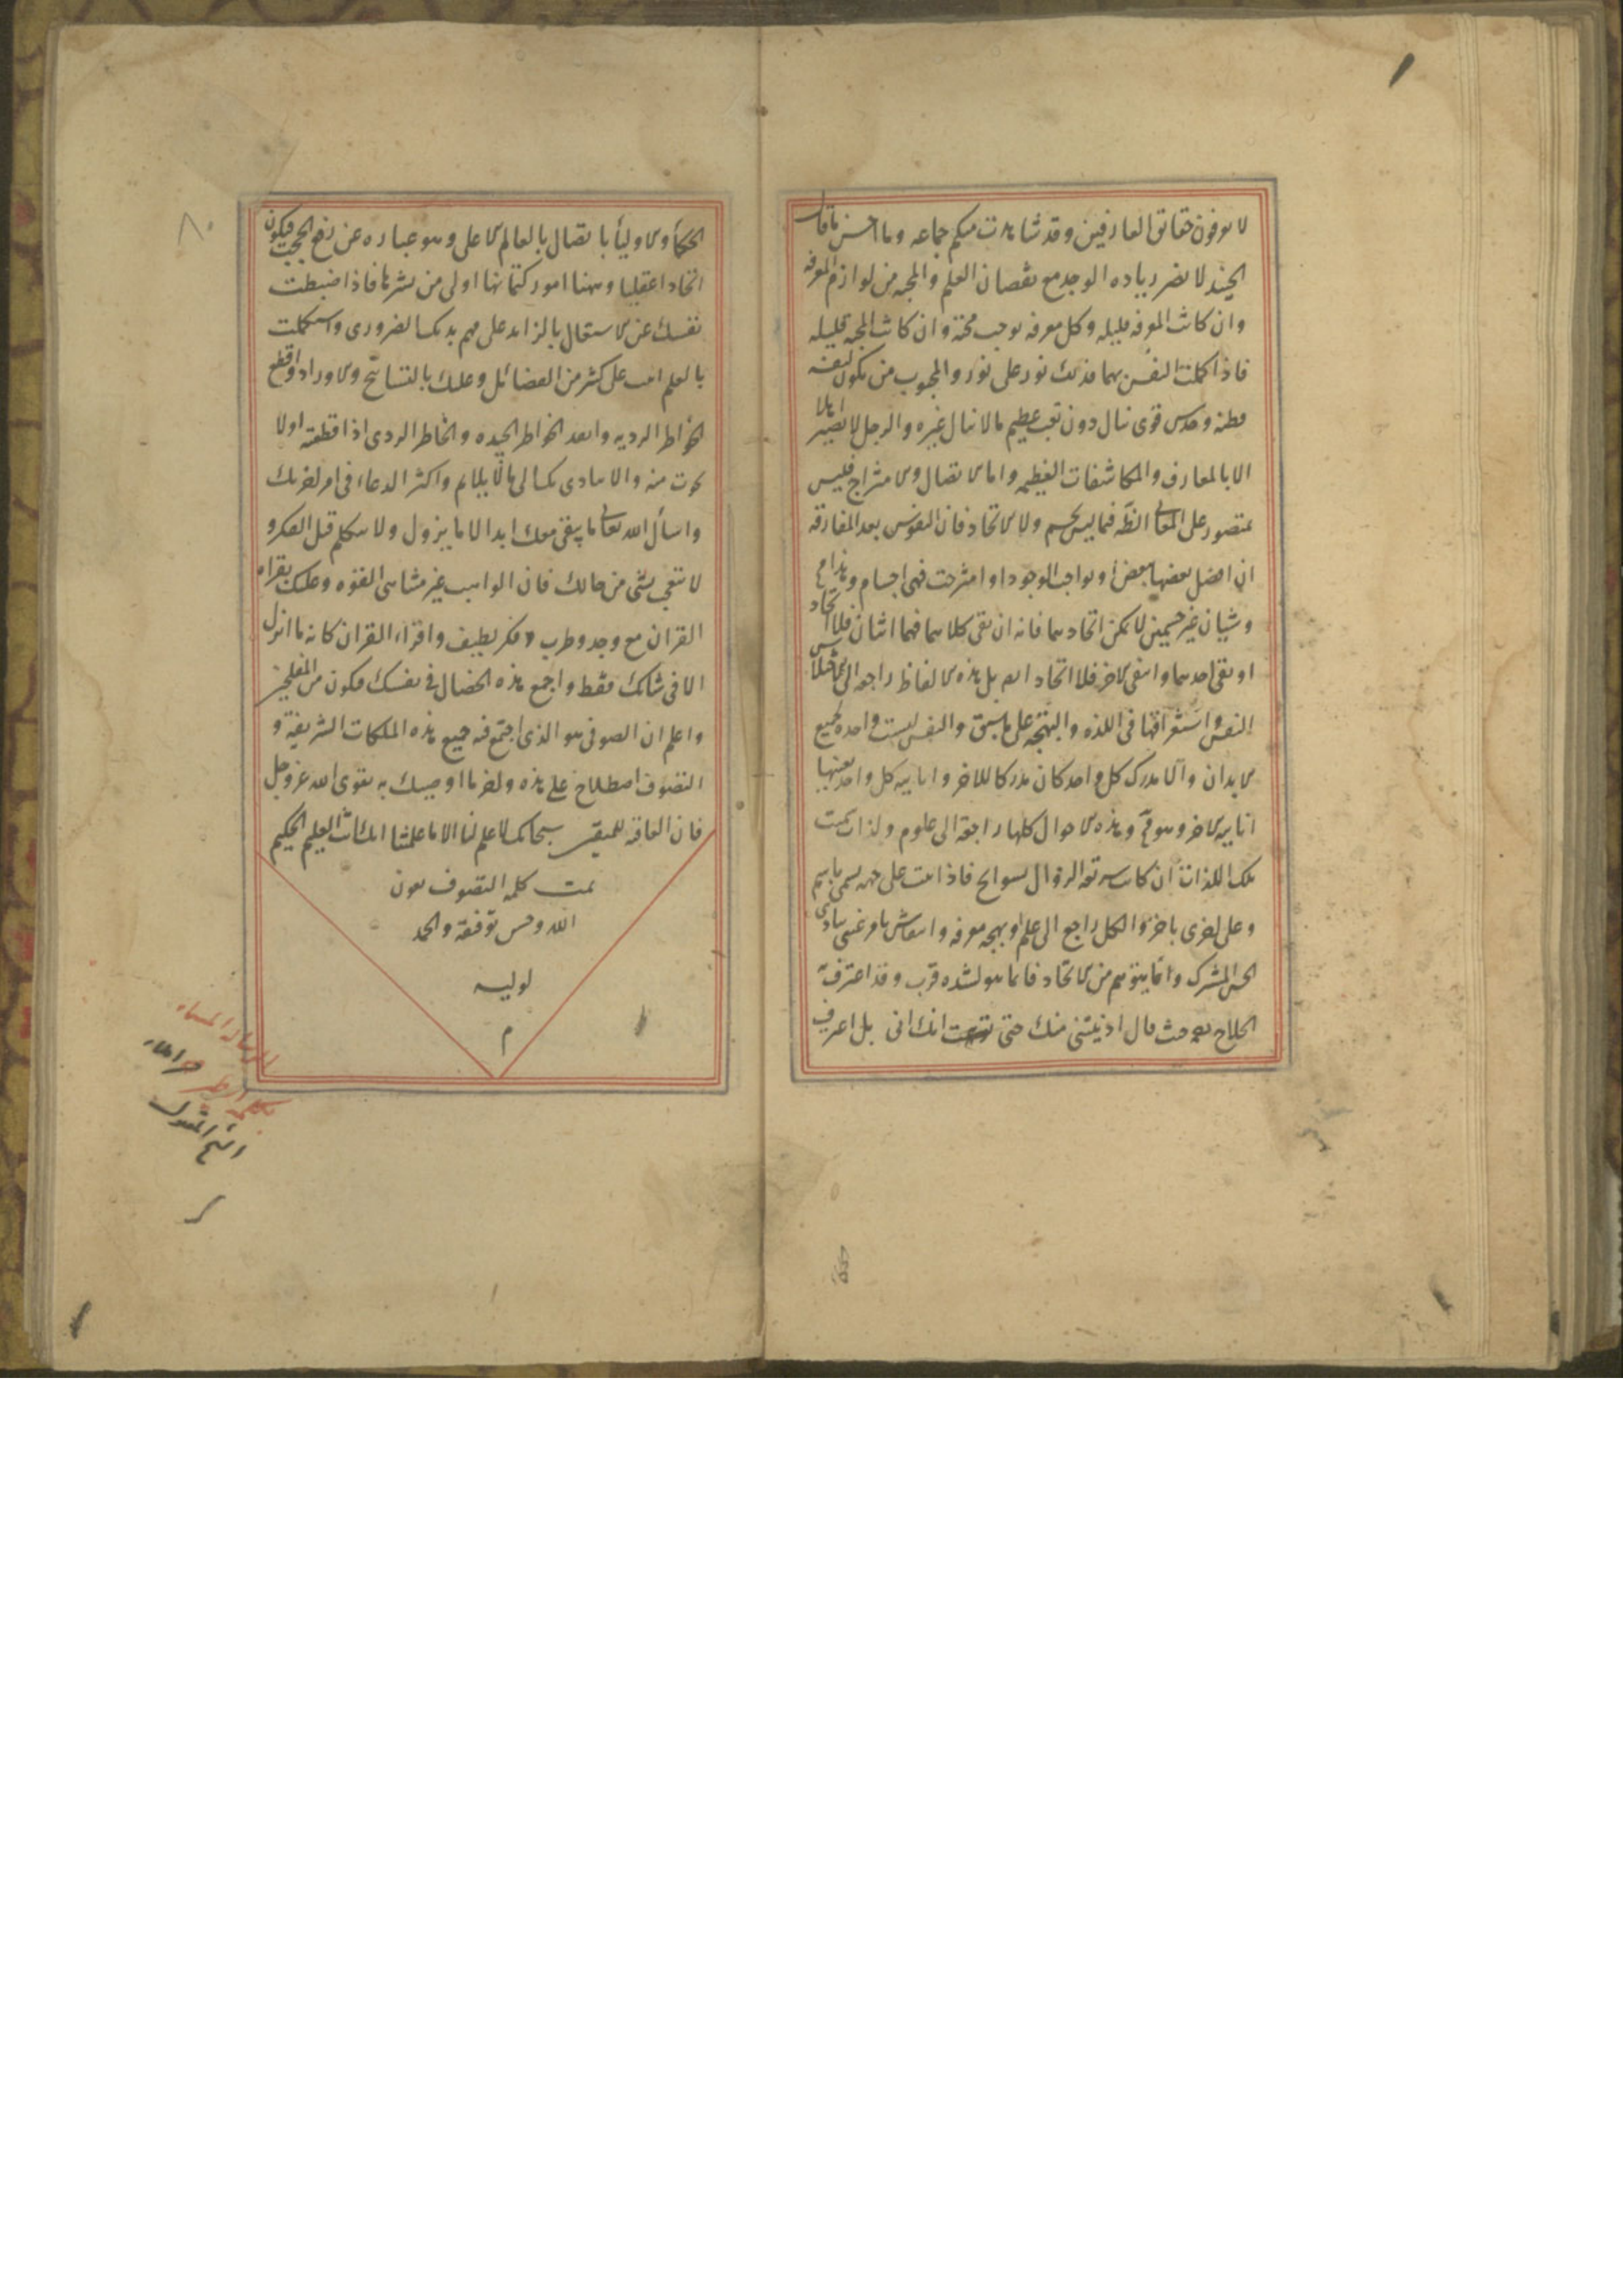 لا يعرفون حقائق العارفين وقد شاهدت منكم جماعه وما احسن ما قال
الجنيد لا يضر زياده الوجد مع نقصان العلم والمحبه من لوازم المعرفه
وان كانت المعرفه قليله وكل معرفه توجب محبة وان كانت المحبه قليله
فاذا كملت النفس بهما فذلك نور على نور والمحبوب من يكون لنفسه
فطنه وحدس قوى ينال دون تعب عظيم ما لا ينال غيره والرجل لا يصير اهلا
الا بالمعارف والمكاشفات العظيمه واما الاتصال والامتزاج فليس
بمتصور على فيما ليس بجسم ولا الاتحاد فان النفوس بعد المفارقه
ان اتصل بعضها ببعض او بواجب الوجود او امتزجت فهى اجسام وهذا مح
وشيان غير جسمين لا يمكن اتحادهما فانه ان بقى كلاهما فهما اثنان فلا اتحاد
او بقى احدهما وانتفى الاخر فلا اتحاد ايم بل هذه الالفاظ راجعه الى
النفس واستغراقها فى اللذه والبهجه على ما سبق والنفس ليست واحده لجميع
الابدان والا مدرك كل واحد كان مدركا للاخر وانانيه كل واحد بعينها
انانيه الاخر وهو مح وهذه الاحوال كلها راجعه الى علوم ولذات ثمت
تلك اللذات ان كانت سريعه الزوال بسوانح فاذا تمت على جهه يسمى باسم
وعلى اخرى باخر والكل راجع الى علم او بهجه معرفه وانتقاش بامر غيبى
الحس المشترك وانما يتوهم من الاتحاد فانما هو لشده قرب وقد اعترف
الحلاج به حيث قال ادنيتنى منك حتى انك انى بل اعرف
٨٠
الحكماء والاولياء باتصال بالعالم الاعلى وهو عباره عن رفع الحجب فيكون
اتحادا عقليا وههنا امور كتمانها اولى من نشرها فاذا ضبطت
نفسك عن الاشتغال بالزايد على مهم بدنك الضرورى واستكملت
بالعلم على كثير من الفضائل وعليك بالتسابيح والاوراد واقطع
الخواطر الرديه وابعد الخواطر الجيده والخاطر الردى اذا قطعته اولا
نجوت منه والا يتادى بك الى ما لا يلايم واكثر الدعاء فى امر اخرتك
واسأل الله تعالى ما يبقى معك ابدا لا ما يزول ولا تتكلم قبل الفكر و
لا تتعجب بشى من حالك فان الواهب غير متناهى القوه وعليك بقراه
القران مع وجد وطرب وفكر لطيف واقراء القران كانه ما انزل
الا فى شانك فقط واجمع هذه الخصال فى نفسك فتكون من المفلحين
واعلم ان الصوفى هو الذى اجتمع فيه جميع هذه الملكات الشريفة و
التصوف اصطلاح على هذه واخر ما اوصيك به تقوى الله عز وجل
فان العاقبه للمتقين سبحانك لا علم لنا الا ما علمتنا انك انت العليم الحكيم
تمت كلمه التصوف بعون
الله وحسن توفيقه والحمد
لوليه
م